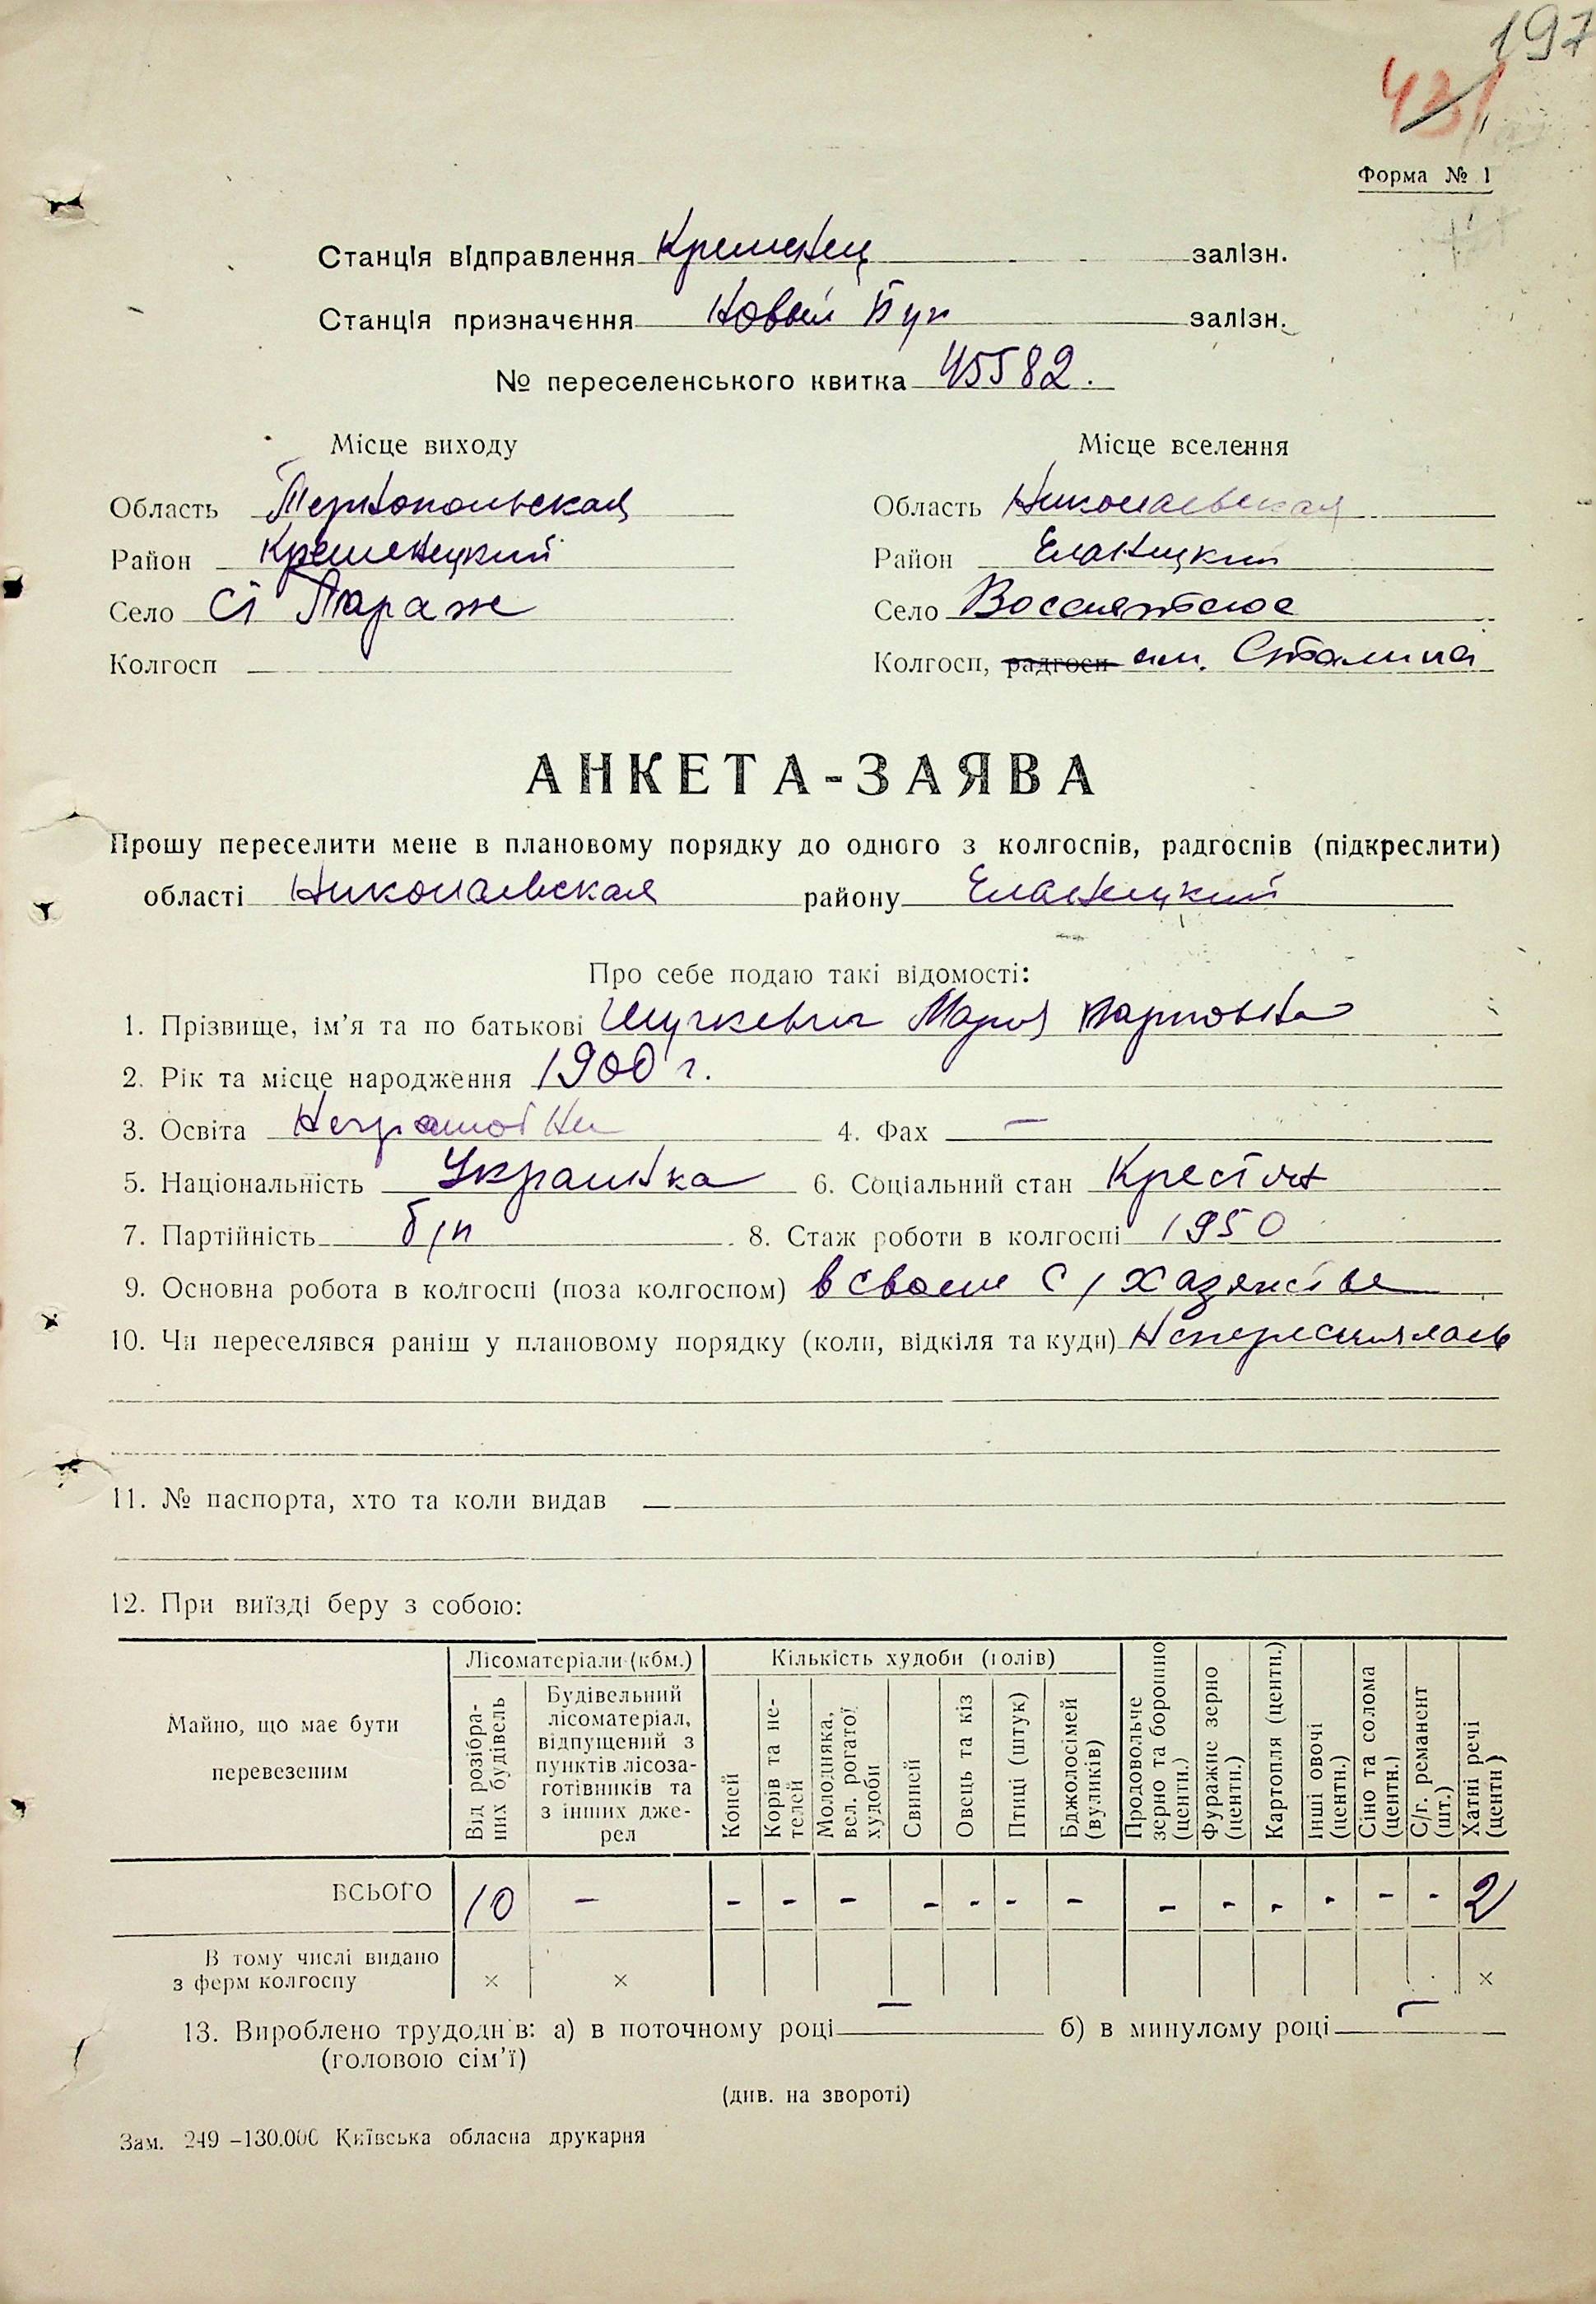 197
431
Форма № 1
Станція відправлення Кременец залізн.
Станція призначення Новый Буг залізн.
№ переселенського квитка 45582.
Місце виходу Місце вселення
Область Тернопольская Область Николаевская
Район Кременецкий Район Еланецкий
Село Ст Тараж Село Воссиятское
Колгосп Колгосп, радгосп им. Сталина
АНКЕТА-ЗАЯВА
Прошу переселити мене в плановому порядку до одного з колгоспів, радгоспів (підкреслити)
області Николаевская району Еланецкий
Про себе подаю такі відомості:
1. Прізвище, ім’я та по батькові Шучкевич Мария Карповна
2. Рік та місце народження 1900 г.
3. Освіта Неграмотн 4. Фах —
5. Національність Украинка 6. Соціальний стан Крестян
7. Партійність б/п 8. Стаж роботи в колгоспі 1950
9. Основна робота в колгоспі (поза колгоспом) в своем с/хазяйстве
10. Чи переселявся раніш у плановому порядку (коли, відкіля та куди) Непереселялась
11. № паспорта, хто та коли видав —
12. При виїзді беру з собою:
Майно, що має бути перевезеним
Лісоматеріали (кбм.)
Від розібраних будівель
Будівельний лісоматеріал, відпущений з пунктів лісоза-
готівників та з інших дже-
рел
Кількість худоби (голів)
Коней
Корів та не-
телей
Молодняка, вел. рогатої худоби
Свиней
Овець та кіз
Птиці (штук)
Бджолосімей (вуликів)
Продовольче зерно та борошно (центн.)
Фуражне зерно (центн.)
Картопля (центн.)
Інші овочі (центн.)
Сіно та солома (центн.)
С/г. реманент (шт.)
Хатні речі (центн)
ВСЬОГО 10 – – – – – – – – – – – – – – 2
В тому числі видано
з ферм колгоспу × × ×
13. Вироблено трудоднів: а) в поточному році — б) в минулому році —
(головою сім’ї)
(див. на звороті)
Зам. 249–130.000 Київська обласна друкарня